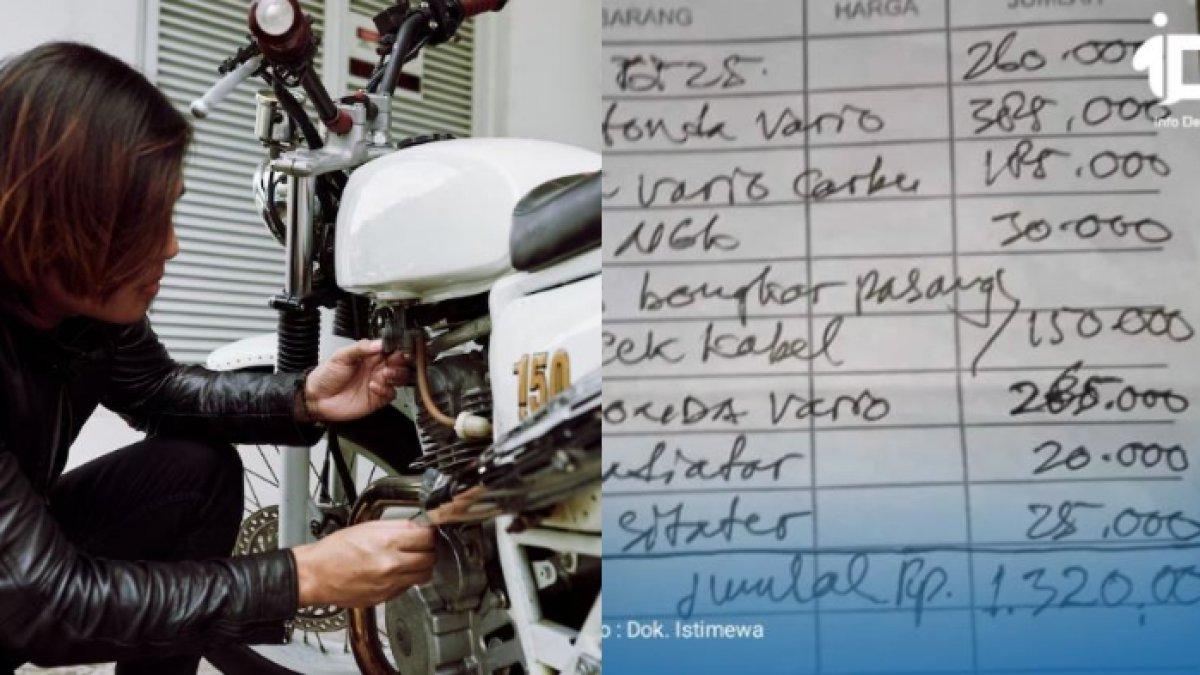 150
BARANG HARGA JUMLAH
260.000
Honda Vario 385.000
Vario Carbu 185.000
NGK 30.000
bongkar pasang
Cek Kabel 150.000
HONDA Vario 265.000
20.000
25.000
Jumlah Rp. 1.320.00
iD
Info De
o : Dok. Istimewa